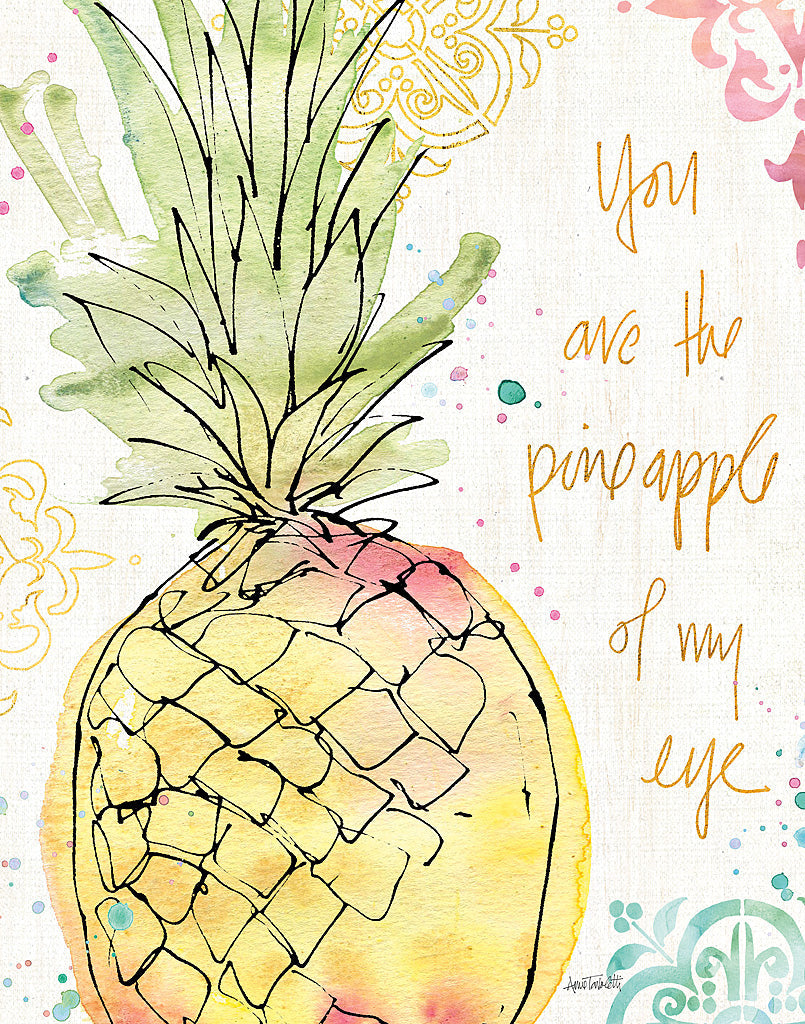 You
are the
pineapple
of my
eye
Anne Tavoletti